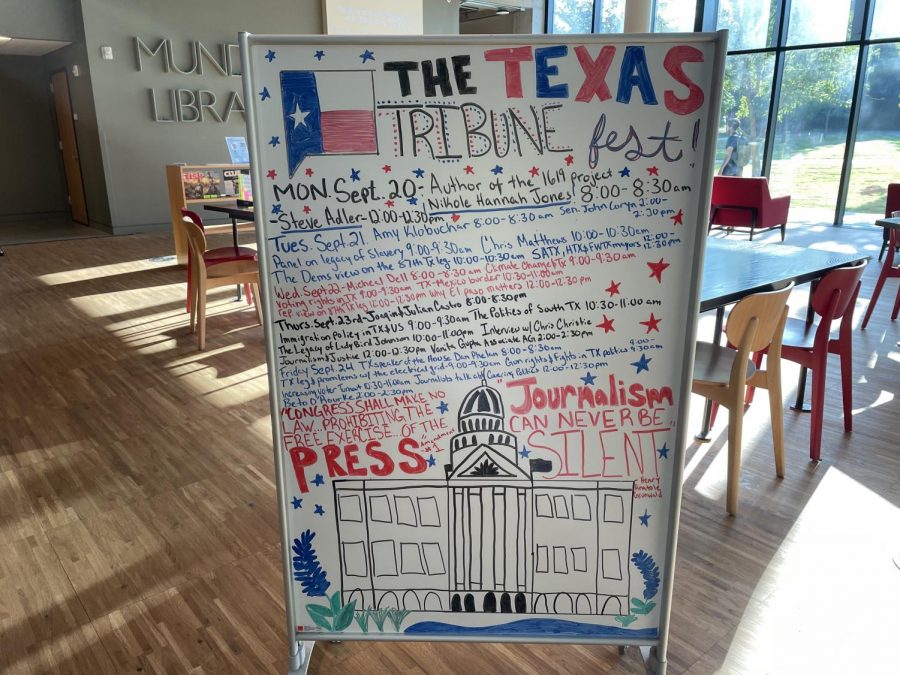 MUND
LIBRA
THE TEXAS
TRIBUNE fest!
MON. Sept. 20- Author of the 1619 project
Nikole Hannah Jones 8:00-8:30am
-Steve Adler-12:00-12:30pm
Tues. Sept 21. Amy Klobuchar 8:00-8:30am Sen. John Coryn 2:00-2:30pm
Panel on legacy of Slavery 9:00-9:30am Chris Matthews 10:00-10:30am
The Dems view on the 87th TX leg 10:00-10:30am SATX, HTX & FWTX mayors 12:00-12:30pm
Wed. Sept 22- Micheal Dell 8:00-8:30am Climate Change & TX 9:00-9:30am
Voting rights in TX 9:00-9:30am TX-Mexico border 10:30-11:00am
Rep view on 87th TX leg 12:00-12:30pm Why El paso matters 12:00-12:30pm
Thurs. Sept. 23rd- Joaqin & Julian Castro 8:00-8:30pm
Immigration Policy in TX & US 9:00-9:30am The Politics of South TX 10:30-11:00am
The Legacy of Lady Bird Johnson 10:00-11:00pm Interview w/ Chris Christie
Journalism & Justice 12:00-12:30pm Vanita Gupta Associate AG 2:00-2:30pm
Friday Sept. 24 TX speaker of the House Dan Phelan 8:00-8:30am
TX leg promlems w/ the electrical grid 9:00-9:30am Gun rights & fights in TX politics 9:00-9:30
Increasing voter turnout 10:30-11:00am Journalists talk abt Covering Politics 12:00-12:30pm
Beto O'Rourke 2:00-2:30pm
"CONGRESS SHALL MAKE NO
LAW... PROHIBITING THE
FREE EXERCISE... OF THE
PRESS"
-Amendment #1
"Journalism
CAN NEVER BE
SILENT"
-Henry
Anatole
Grunwald